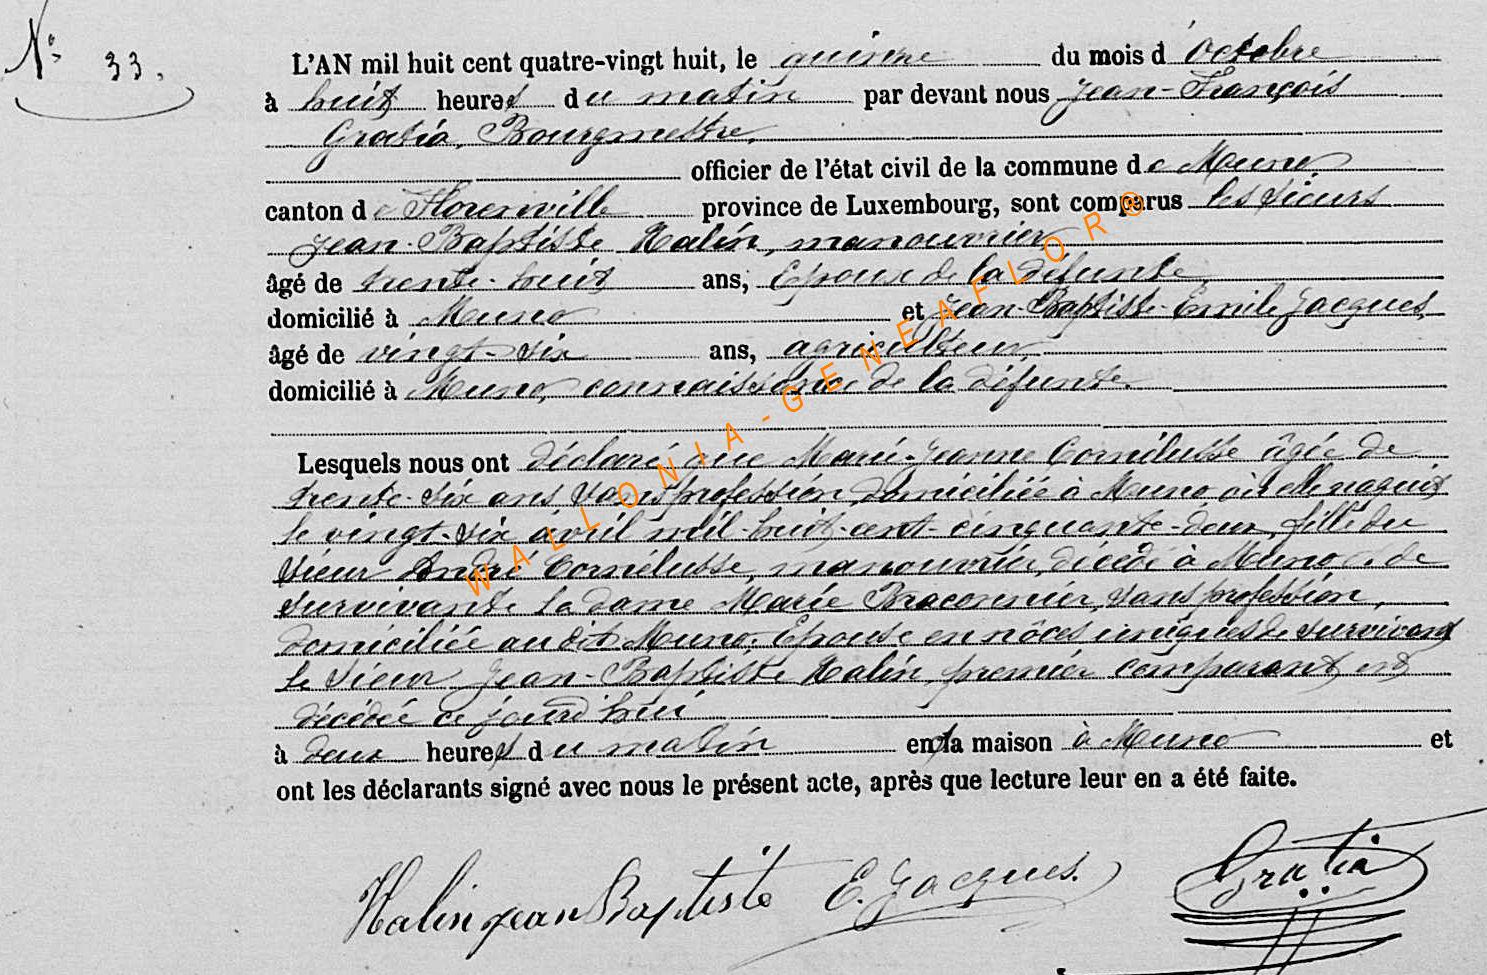 N° 33.
L'AN mil huit cent quatre-vingt huit, le quinze du mois d'Octobre
à huit heures du matin par devant nous Jean-François
Gratia, Bourgmestre,
officier de l'état civil de la commune de Muno
canton de Florenville province de Luxembourg, sont comparus les sieurs
Jean-Baptiste Halin, manouvrier,
âgé de trente-huit ans, Epoux de la défunte
domicilié à Muno et Jean-Baptiste-Emile Jacques,
âgé de vingt-six ans, agriculteur,
domicilié à Muno, connaissance de la défunte.
Lesquels nous ont déclaré que Marie-Jeanne Cornélusse âgée de
trente-six ans, sans profession, domiciliée à Muno où elle naquit
le vingt-six avril mil-huit-cent-cinquante-deux, fille du
sieur André Cornélusse, manouvrier, décédé à Muno & de
survivante la dame Marie Braconnier, sans profession,
domiciliée au dit Muno. Epouse en nôces uniques de survivant
le sieur Jean-Baptiste Halin, premier comparant, est
décédée ce jourd'hui
à deux heures du matin en sa maison à Muno et
ont les déclarants signé avec nous le présent acte, après que lecture leur en a été faite.
Halin jean Baptiste E. Jacques. Gratia
WALLONIA-GENEAFLOR®